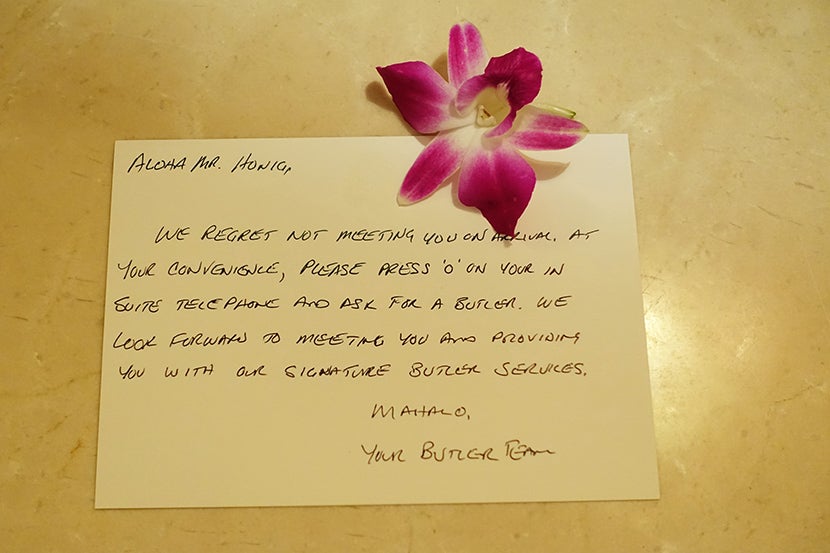 ALOHA MR. HONIG,
WE REGRET NOT MEETING YOU ON ARRIVAL. AT
YOUR CONVENIENCE, PLEASE PRESS 'O' ON YOUR IN
SUITE TELEPHONE AND ASK FOR A BUTLER. WE
LOOK FORWARD TO MEETING YOU AND PROVIDING
YOU WITH OUR SIGNATURE BUTLER SERVICES.
MAHALO,
YOUR BUTLER TEAM